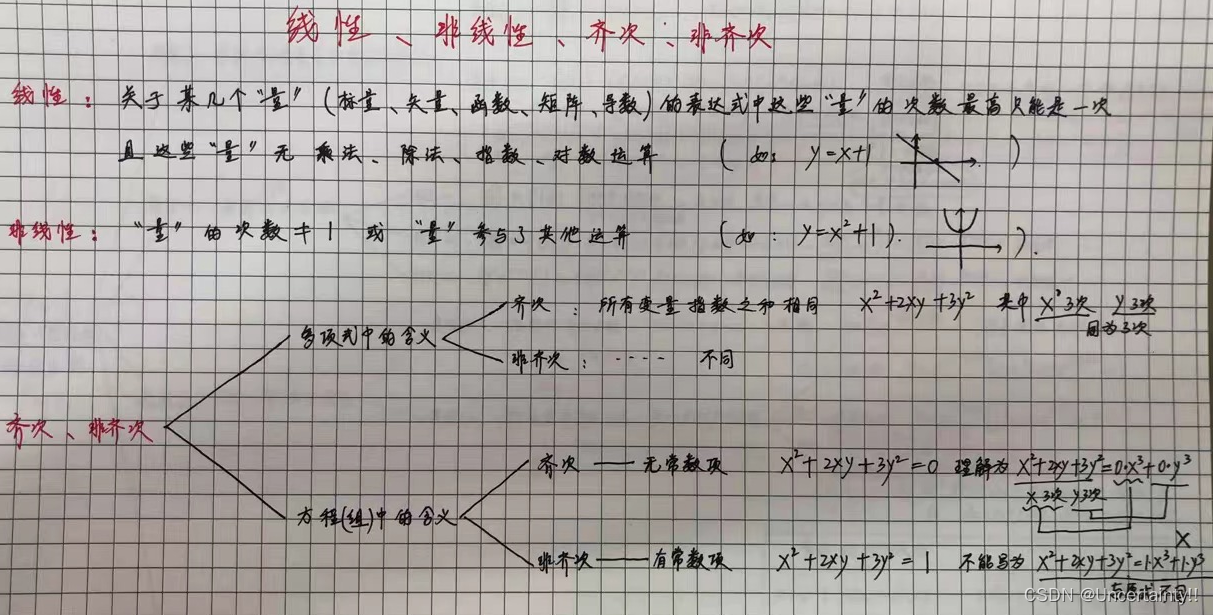 线性、非线性、齐次、非齐次
线性: 关于某几个"量"(标量、矢量、函数、矩阵、导数)的表达式中这些"量"的次数最高只能是一次
且这些"量"无乘法、除法、指数、对数运算 (如: y=x+1 )
非线性: "量"的次数≠1 或 "量"参与了其他运算 (如: y=x²+1). ).
齐次: 所有变量指数之和相同 x²+2xy+3y² 其中 x 3次 y 3次
同为3次
多项式中的含义
非齐次: ---- 不同
齐次、非齐次
齐次 —— 无常数项 x²+2xy+3y²=0 理解为 x²+2xy+3y²=0·x³+0·y³
x 3次 y3次
方程(组)中的含义
x
非齐次 —— 有常数项 x²+2xy+3y²=1 不能写为 x²+2xy+3y²=1·x³+1·y³
不同
CSDN @Uncertainty!!